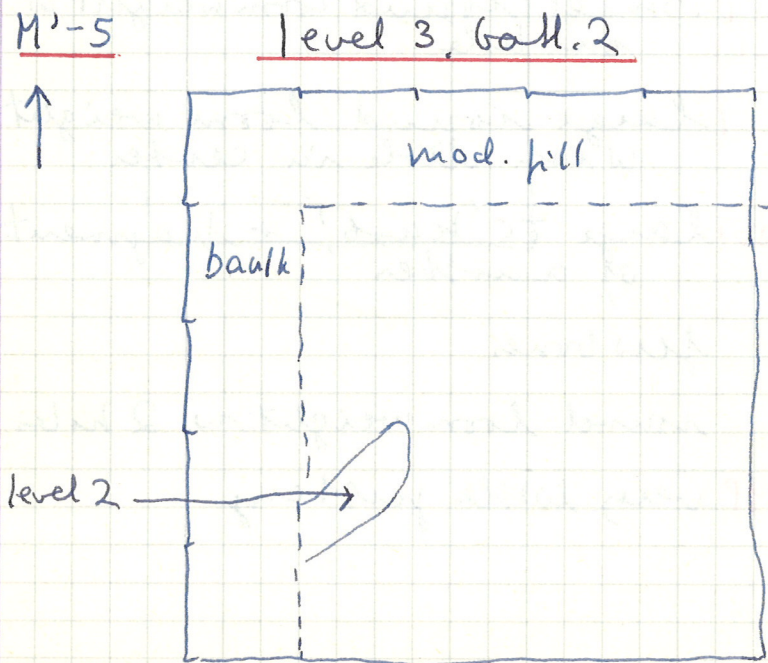 M'-5
level 3, batt. 2
mod. fill
baulk
level 2